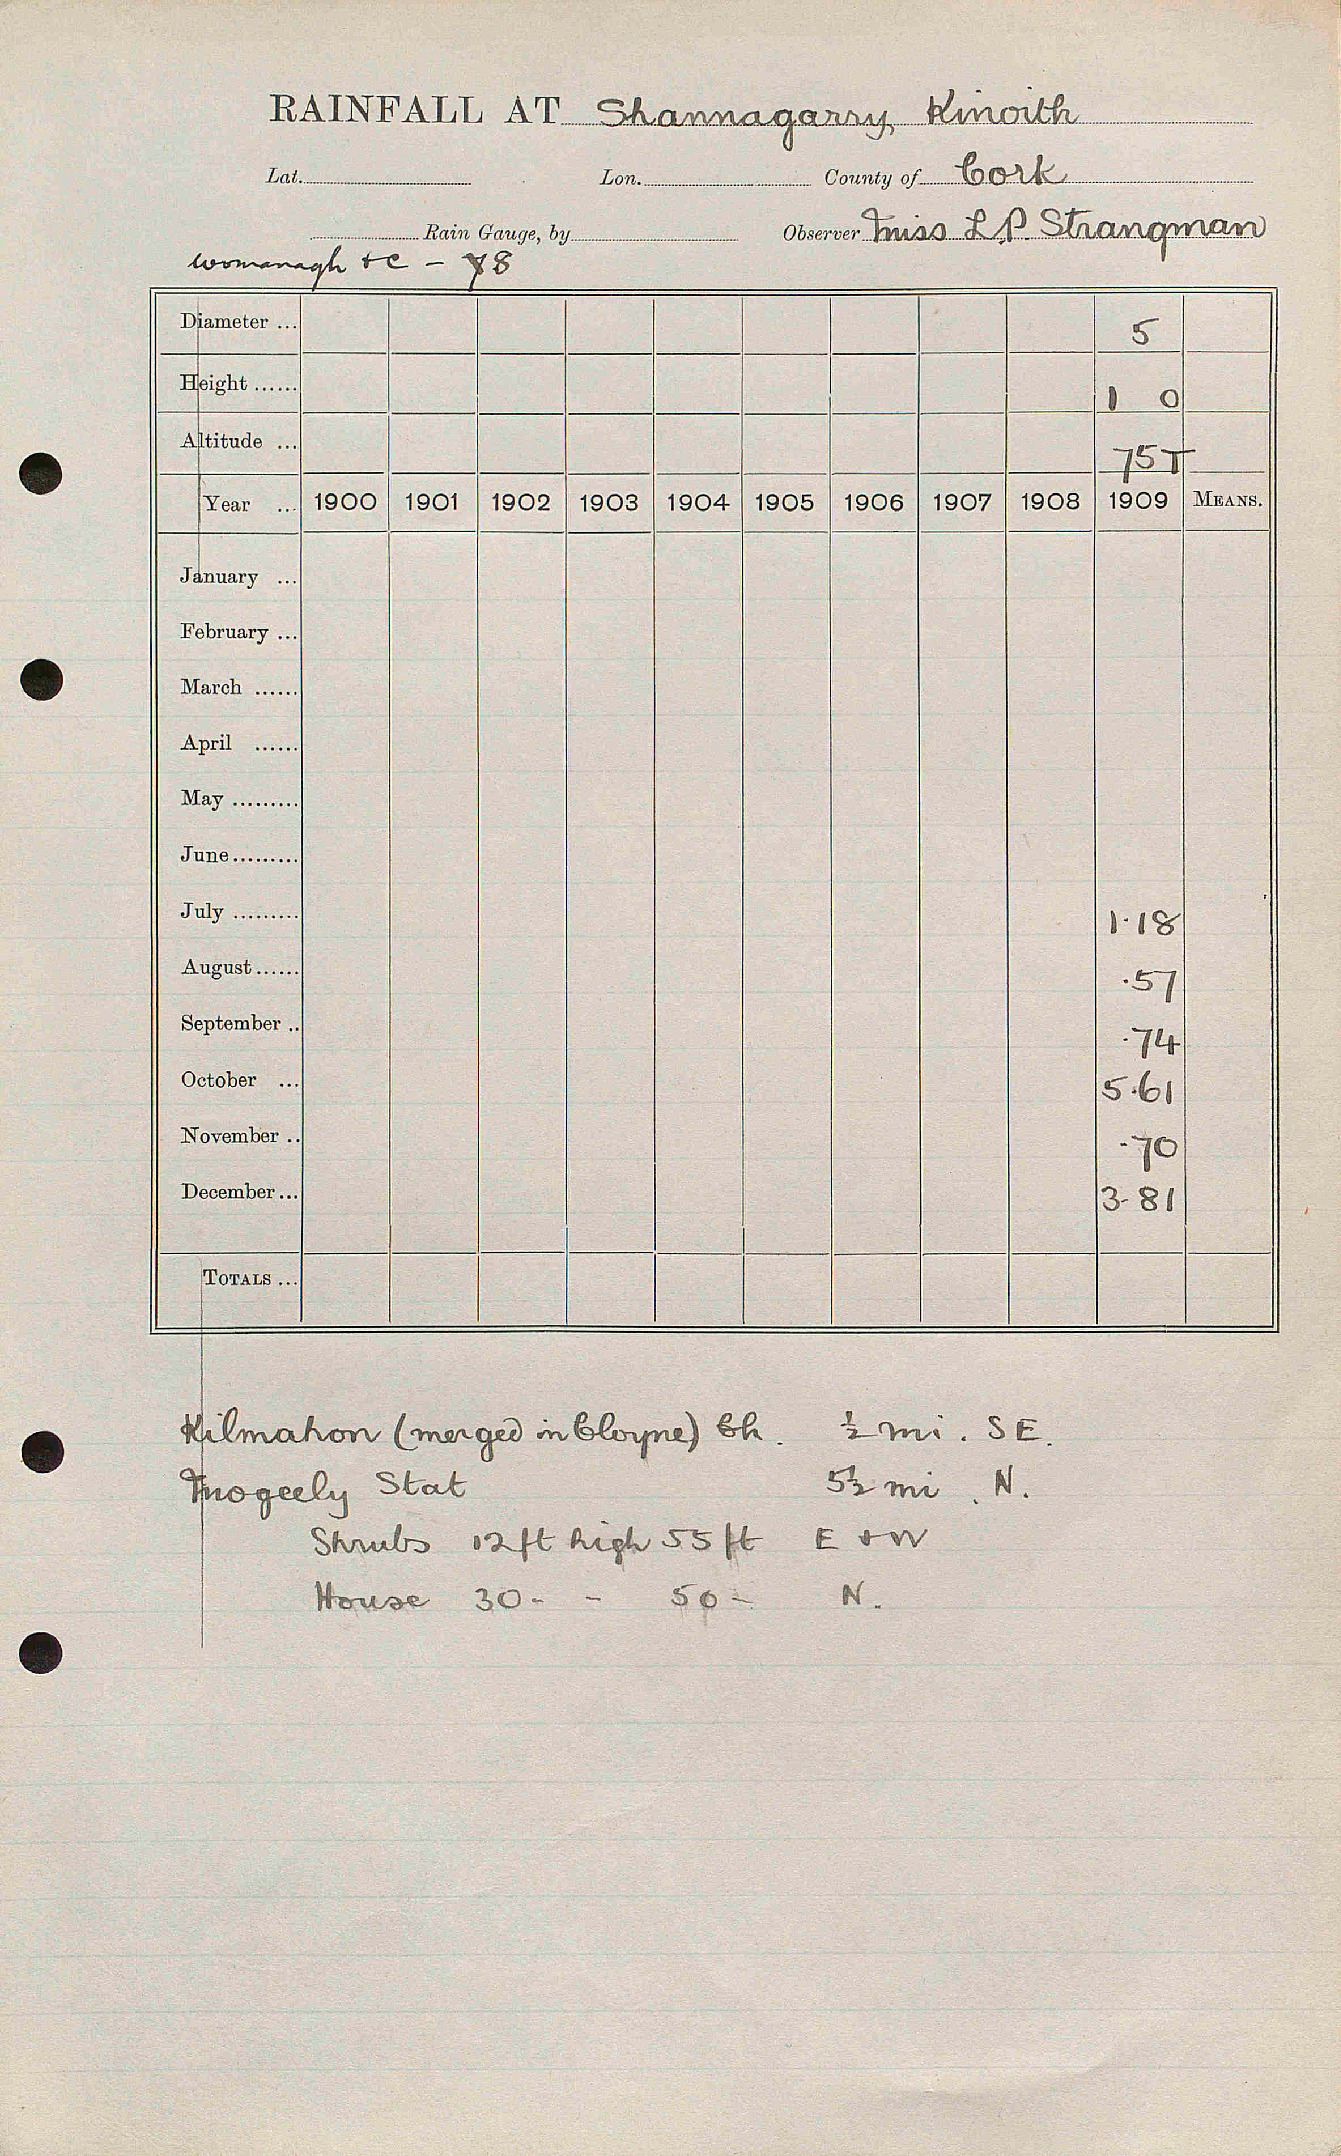 RAINFALL AT Shannagarry, Kinoith
Lat. Lon. County of Cork
Rain Gauge, by Observer Miss L.P. Strangman
Womanagh &c - 8
Diameter ... 5
Height ...... 1 0
Altitude ... 75T
Year ... 1900 1901 1902 1903 1904 1905 1906 1907 1908 1909 MEANS.
January ...
February ...
March ......
April ......
May .........
June.........
July ......... 1.18
August...... .57
September .. .74
October ... 5.61
November .. .70
December... 3.81
TOTALS ...
Kilmahon (merged in Cloyne) Ch. ½ mi. SE.
Mogeely Stat 5½ mi. N.
Shrubs 12 ft high 55 ft E & W
House 30 - - 50 - N.